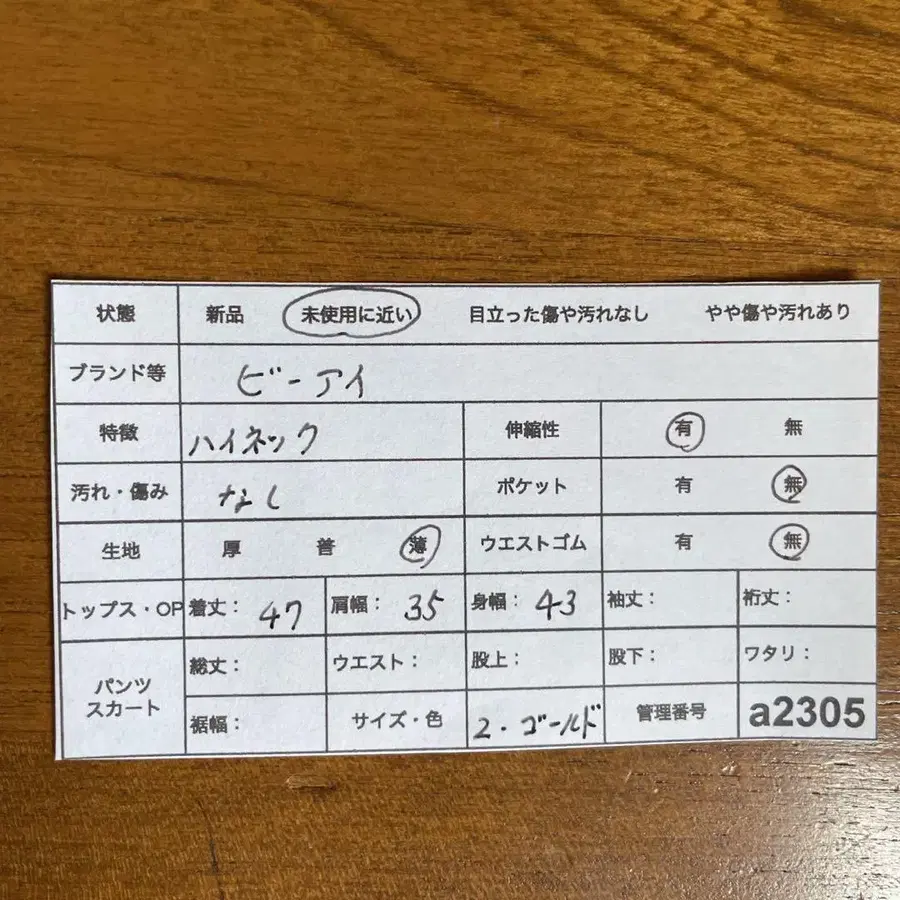 状態 新品 未使用に近い 目立った傷や汚れなし やや傷や汚れあり
ブランド等 ビーアイ
特徴 ハイネック 伸縮性 有 無
汚れ・傷み なし ポケット 有 無
生地 厚 普 薄 ウエストゴム 有 無
トップス・OP 着丈: 47 肩幅: 35 身幅: 43 袖丈: 裄丈:
パンツ スカート 総丈: ウエスト: 股上: 股下: ワタリ:
裾幅: サイズ・色 2・ゴールド 管理番号 a2305